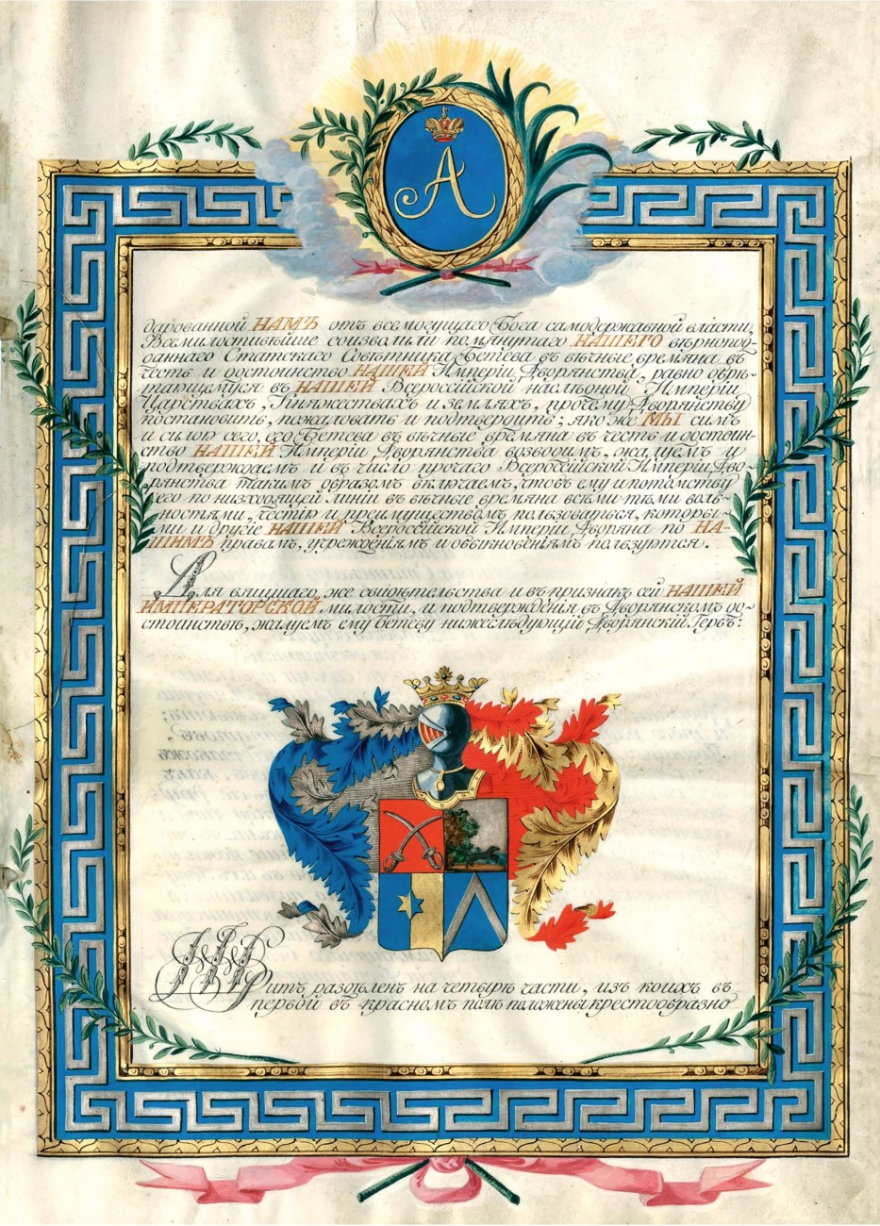 А
дарованной НАМЪ отъ всемогущаго Бога самодержавной власти,
Всемилостивѣйше соизволили помянутаго НАШЕГО вѣрнопод-
даннаго Статскаго Совѣтника Бетева въ вѣчныя времяна въ
честь и достоинство НАШЕЙ Имперіи Дворянства, равно обрѣ-
тающемуся въ НАШЕЙ Всероссійской наслѣдной Имперіи,
Царствахъ, Княжествахъ и земляхъ, прочему Дворянству
постановить, пожаловать и подтвердить; яко же МЫ симъ
и силою сего, его Бетева въ вѣчныя времяна въ честь и достоин-
ство НАШЕЙ Имперіи Дворянства возводимъ, жалуемъ и
подтверждаемъ и въ число прочаго Всеросійской Имперіи Дво-
рянства такимъ образомъ включаемъ, чтобъ ему и потомству
его по низходящей линіи въ вѣчныя времяна всѣми тѣми воль-
ностями, честію и преимуществомъ пользоваться, которы-
ми и другіе НАШЕЙ Всеросійской Имперіи Дворяна по НА-
ШИМЪ правамъ, учрежденіямъ и обыкновеніямъ пользуются.
Для вящшаго же свидѣтельства и въ признакъ сей НАШЕЙ
ИМПЕРАТОРСКОЙ милости, и подтвержденія въ Дворянскомъ до-
стоинствѣ, жалуемъ ему Бетеву нижеслѣдующій Дворянскій Гербъ:
Щитъ раздѣленъ на четыре части, изъ коихъ въ
первой въ красномъ полѣ положены крестообразно